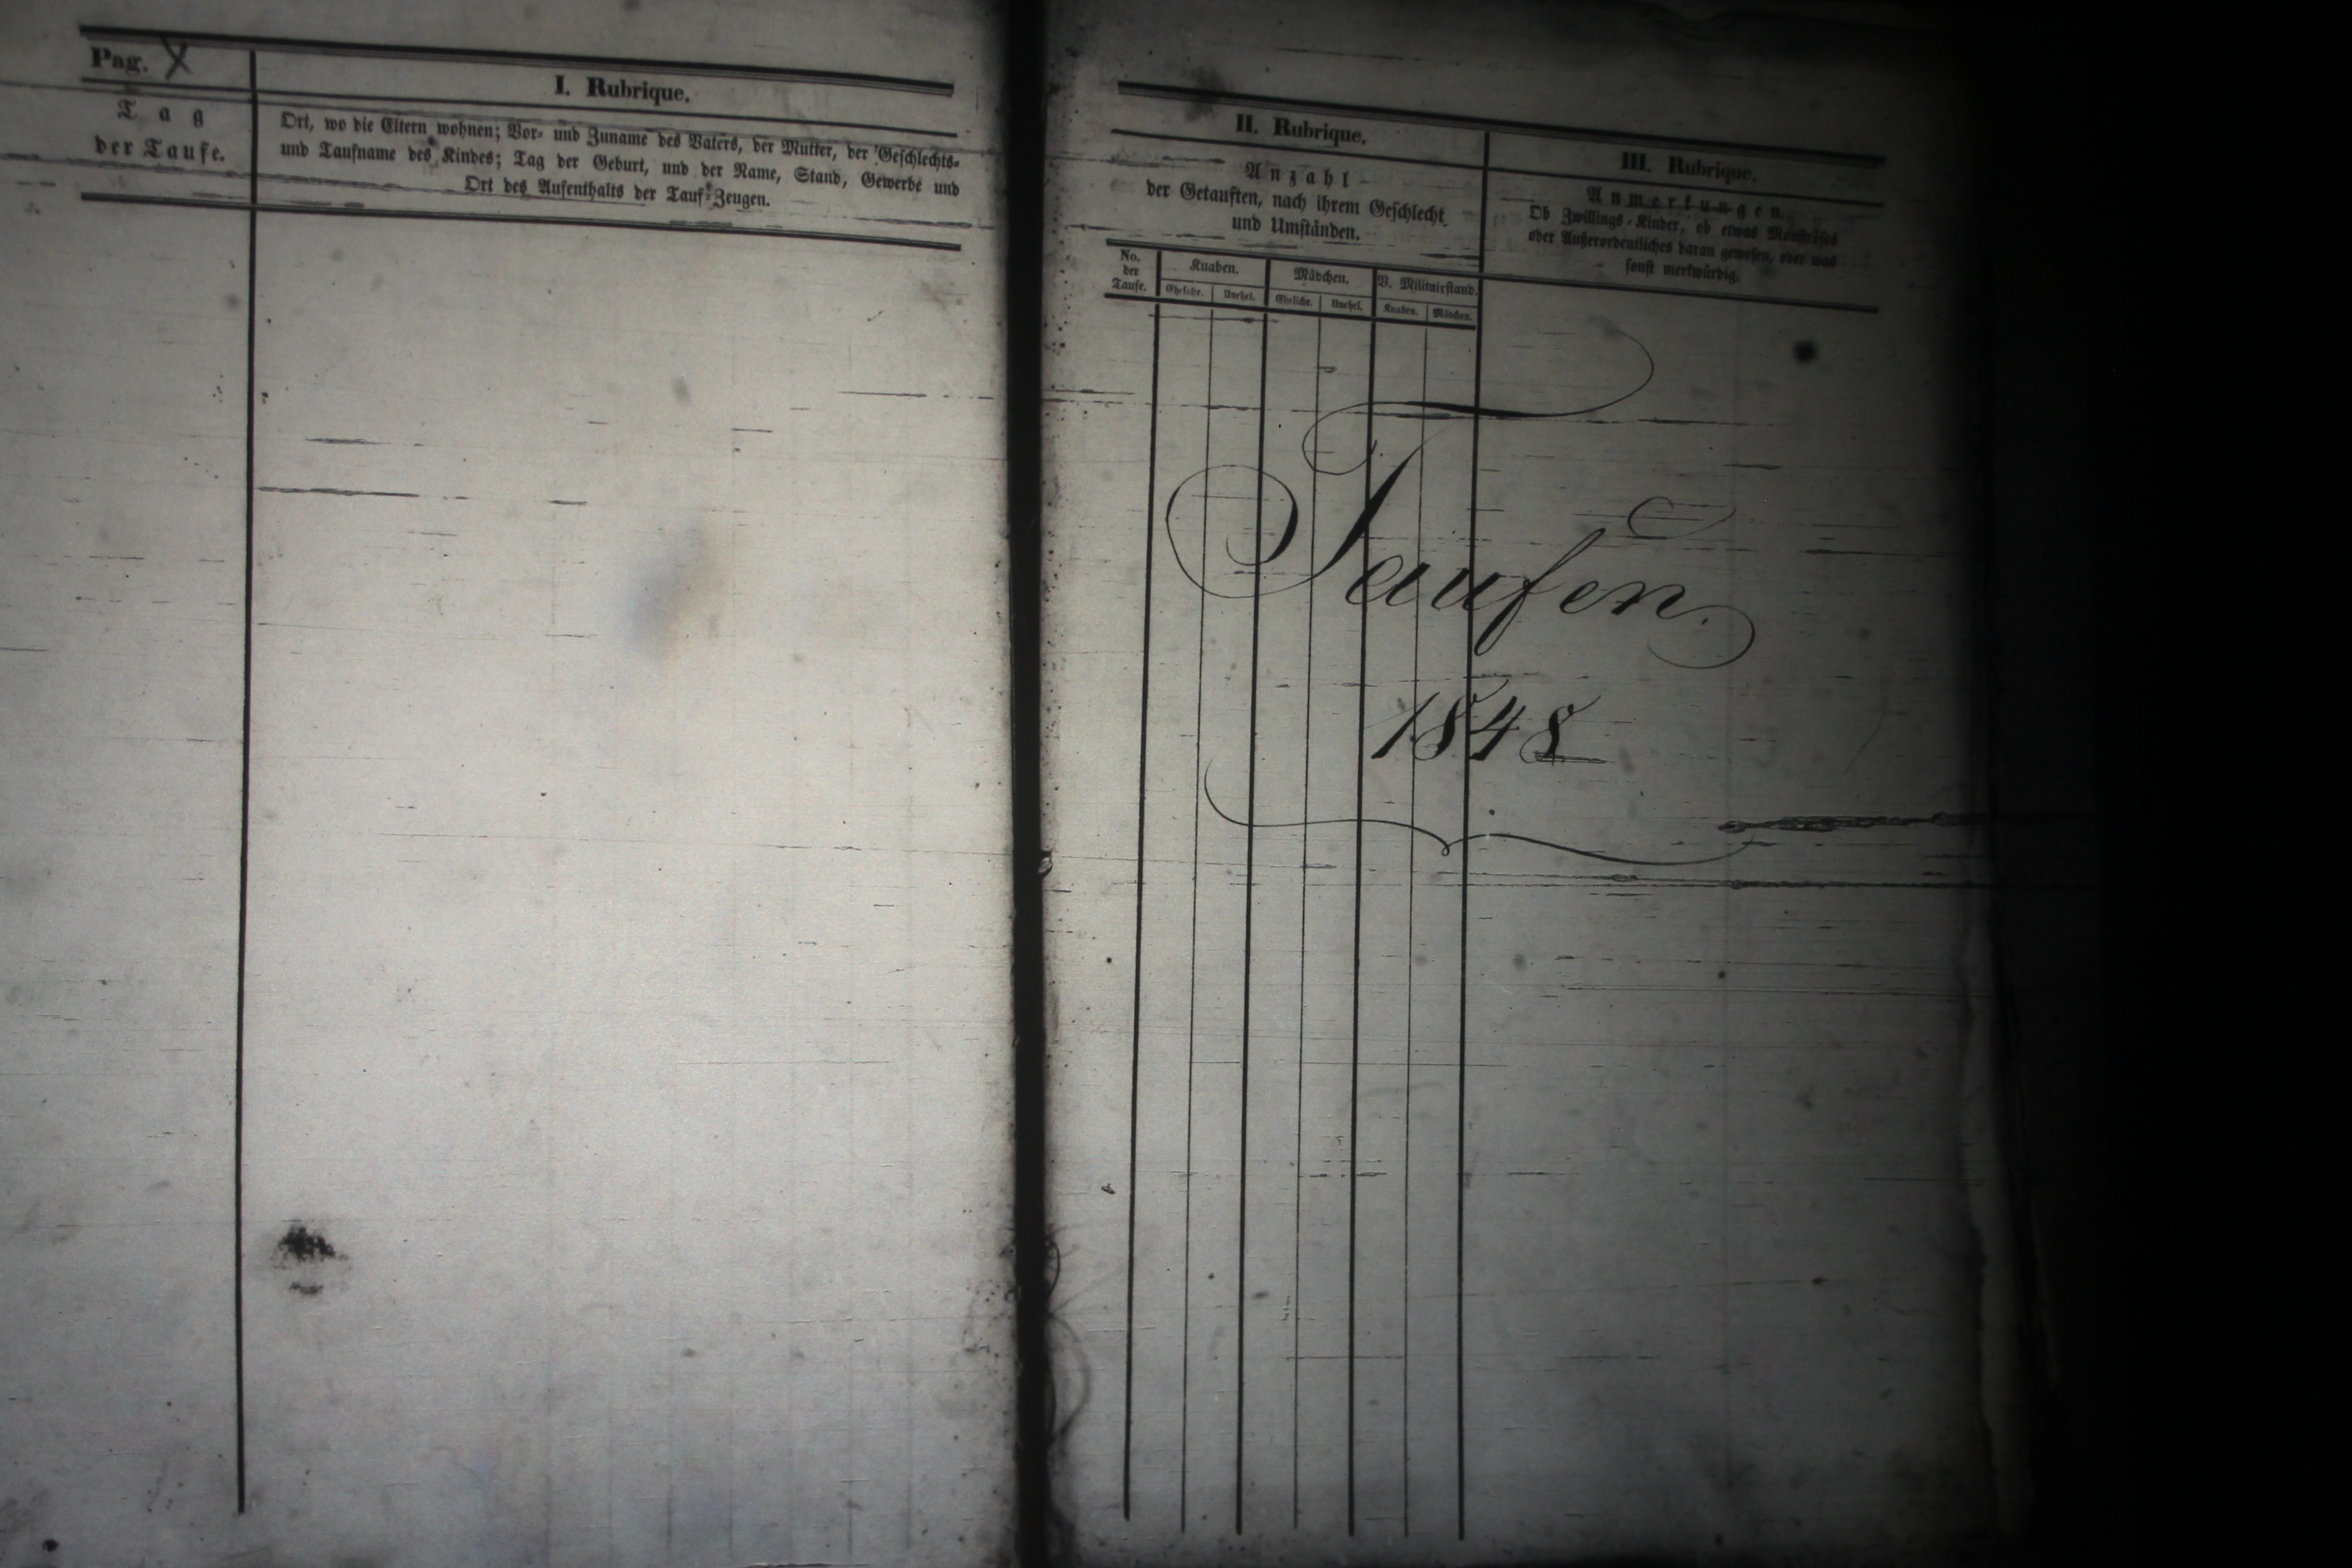 Pag. X
Tag
der Taufe.
I. Rubrique.
Ort, wo die Eltern wohnen; Vor- und Zuname des Vaters, der Mutter, der Geschlechts-
und Taufname des Kindes; Tag der Geburt, und der Name, Stand, Gewerbe und
Ort des Aufenthalts der Tauf-Zeugen.
II. Rubrique.
Anzahl
der Getauften, nach ihrem Geschlecht
und Umständen.
No.
der
Taufe.
Knaben.
Eheliche.
Unehel.
Mädchen.
Eheliche.
Unehel.
V. Militairstand.
Knaben.
Mädchen.
III. Rubrique.
Anmerkungen.
Ob Zwillings-Kinder, ob etwas Monströses
oder Außerordentliches daran gewesen, oder was
sonst merkwürdig.
Taufen.
1848